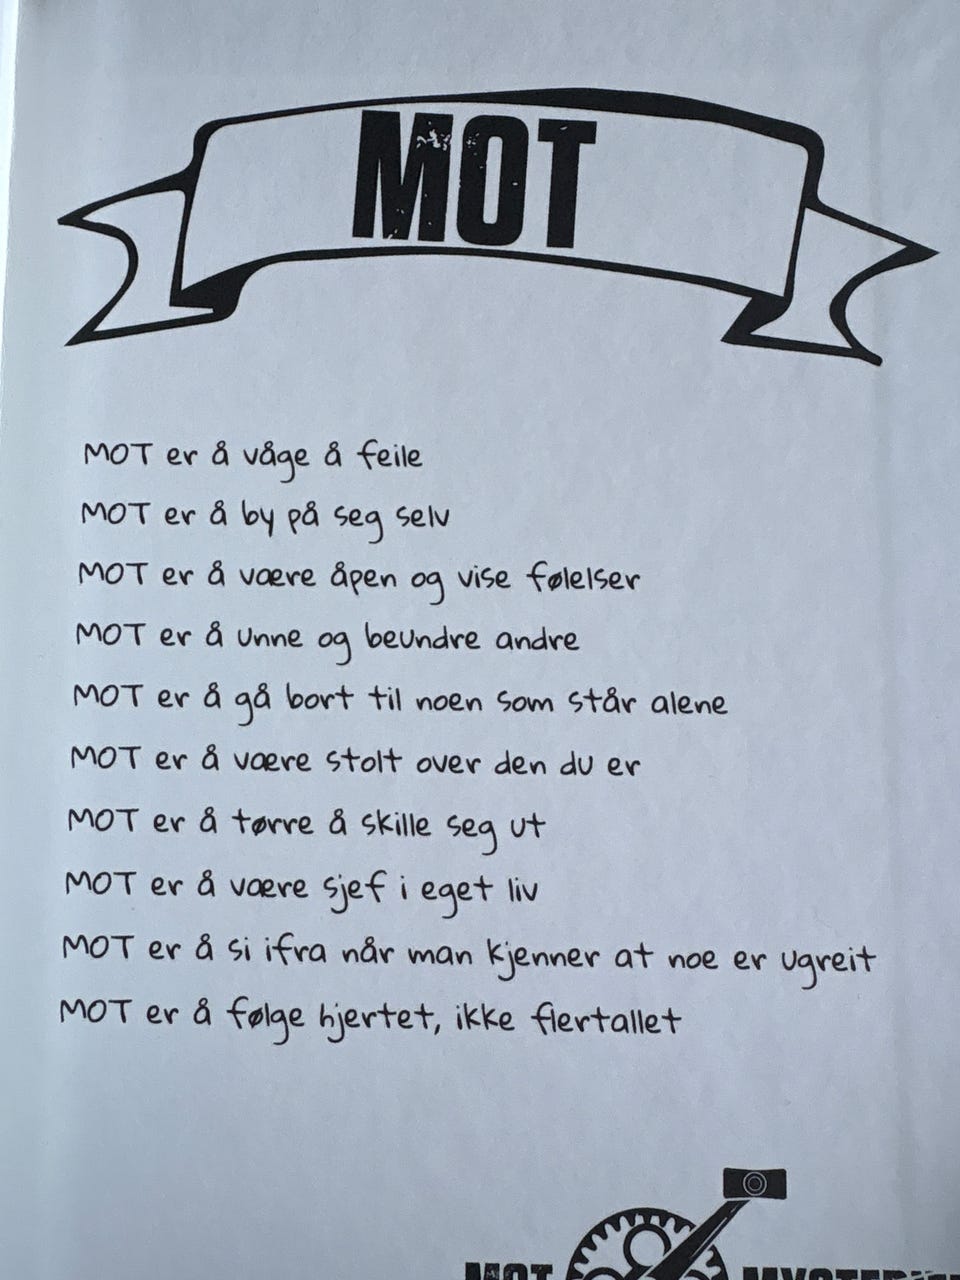 MOT
MOT er å våge å feile
MOT er å by på seg selv
MOT er å være åpen og vise følelser
MOT er å unne og beundre andre
MOT er å gå bort til noen som står alene
MOT er å være stolt over den du er
MOT er å tørre å skille seg ut
MOT er å være sjef i eget liv
MOT er å si ifra når man kjenner at noe er ugreit
MOT er å følge hjertet, ikke flertallet
MOT